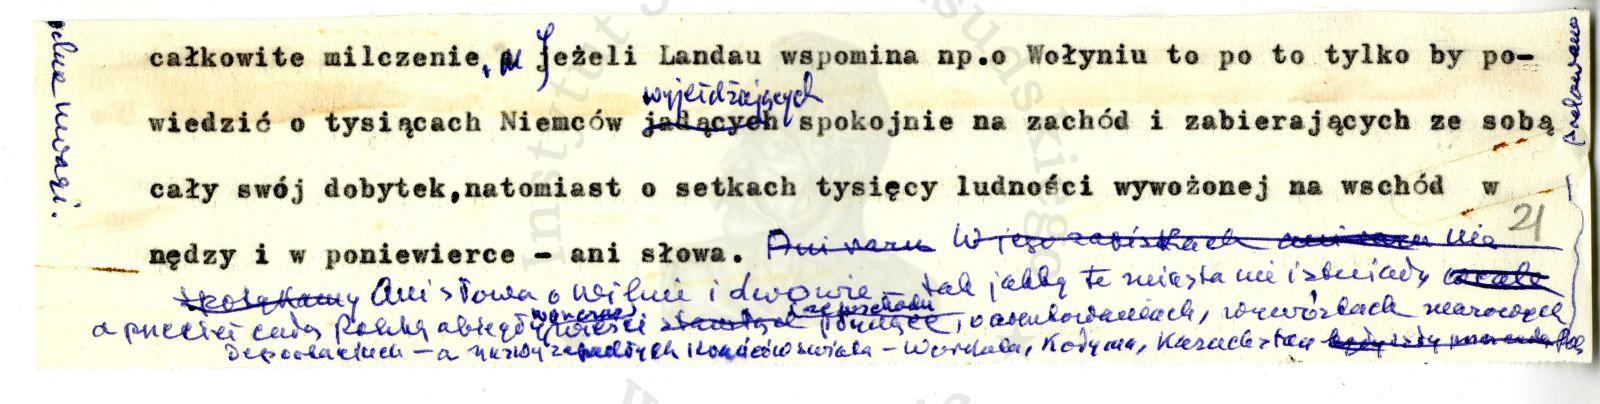 całkowite milczenie, Jeżeli Landau wspomina np.o Wołyniu to po to tylko by po-
wyjeżdżających
wiedzić o tysiącach Niemców jadących spokojnie na zachód i zabierających ze sobą
cały swój dobytek,natomiast o setkach tysięcy ludności wywożonej na wschód w
21
nędzy i w poniewierce - ani słowa. Ani razu W jego zapiskach ani razu nie
spotykamy Ani słowa o Wilnie i Lwowie - tak jakby te miasta nie istniały wcale
a przecież całą Polskę obiegały wieści o aresztowaniach, wywózkach masowych
Deportacjach - a nazwy zapadłych końców świata - Workuta, Kołyma, Kazachstan
uwagi.
Instytut Józefa Piłsudskiego